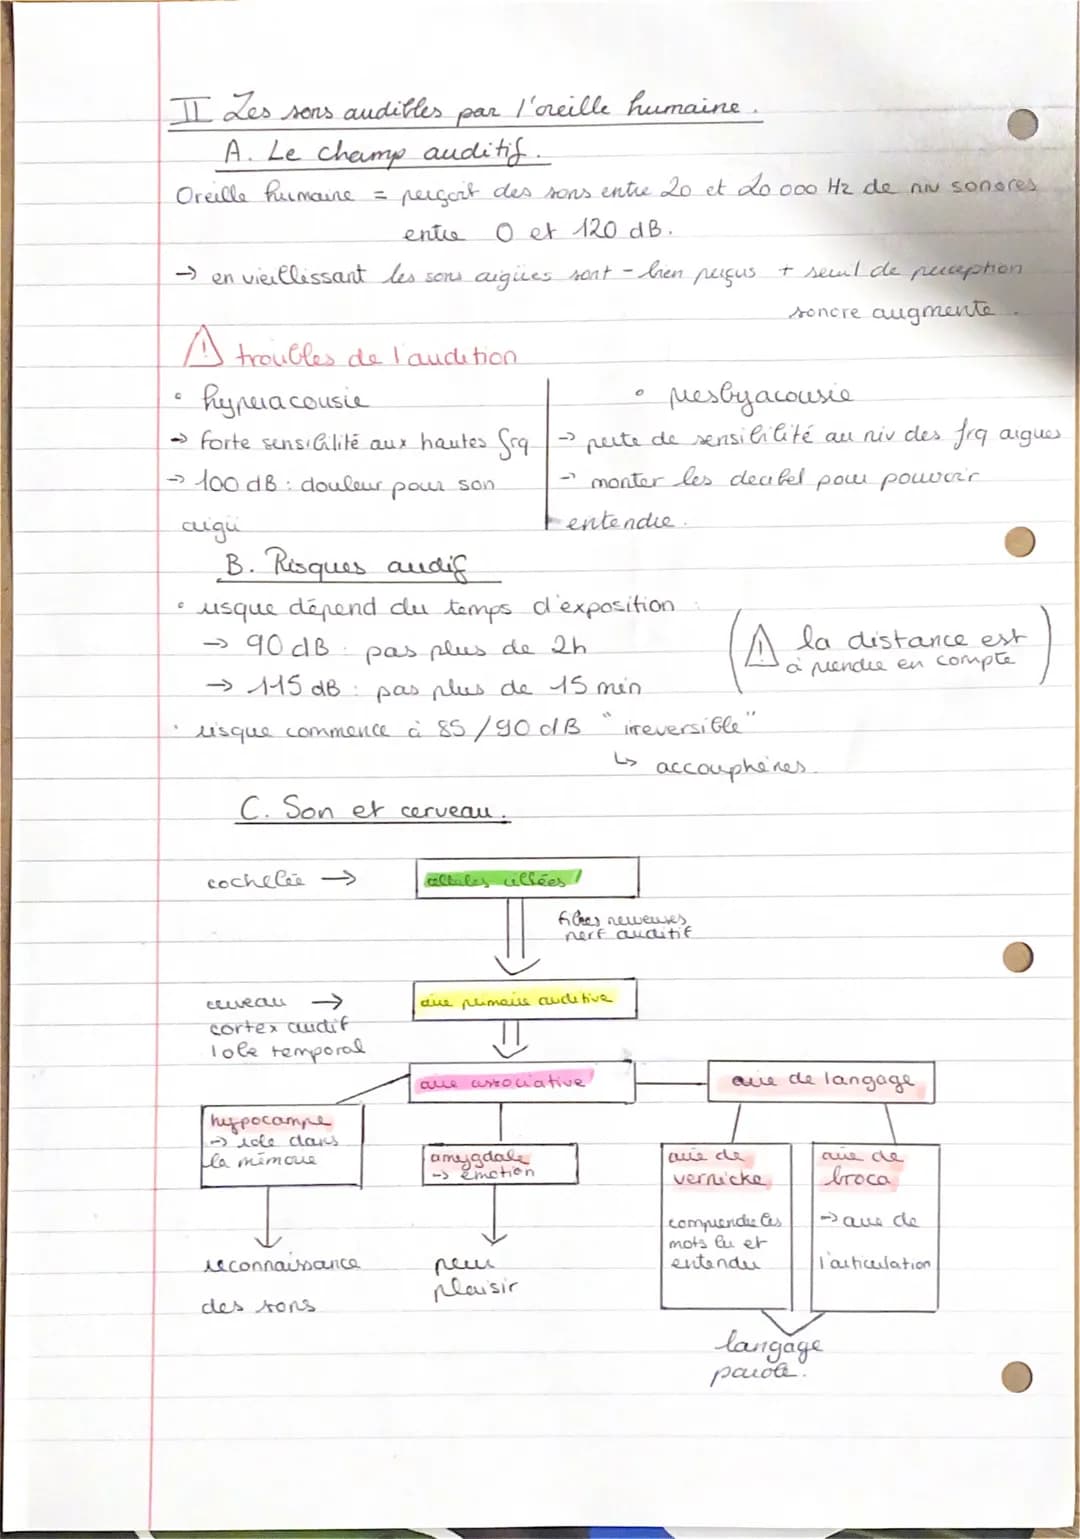 II Les sons audibles par l'oreille humaine.
A. Le champ auditif.
Oreille humaine = perçoit des sons entre 20 et 20 000 Hz de niv sonores
entre 0 et 120 dB.
→ en vieillissant les sons aigües sont - bien perçus + seuil de perception
sonore augmente.
⚠ troubles de l'audition
• hyperacousie
→ forte sensibilité aux hautes frq
→ 100 dB : douleur pour son
aigü
• presbyacousie
→ perte de sensibilité au niv des frq aigues
→ monter les decibel pour pouvoir
entendre.
B. Risques audif
• risque dépend du temps d'exposition :
→ 90 dB : pas plus de 2h
→ 115 dB : pas plus de 15 min
(⚠ la distance est
à prendre en compte)
• risque commence à 85/90 dB "irreversible"
↳ accouphènes.
C. Son et cerveau.
cochelée →
cellules cillées
fibres nerveuses
nerf auditif
cerveau →
cortex audif
lobe temporal
aire primaire auditive
aire associative
aire de langage
hypocampe
→ role dans
la mémoire
amygdale
→ émotion
aire de
vernicke
comprendre les
mots lu et
entendu
aire de
broca
→ aire de
l'articulation
reconnaissance
des sons
peur
plaisir
langage
parole.